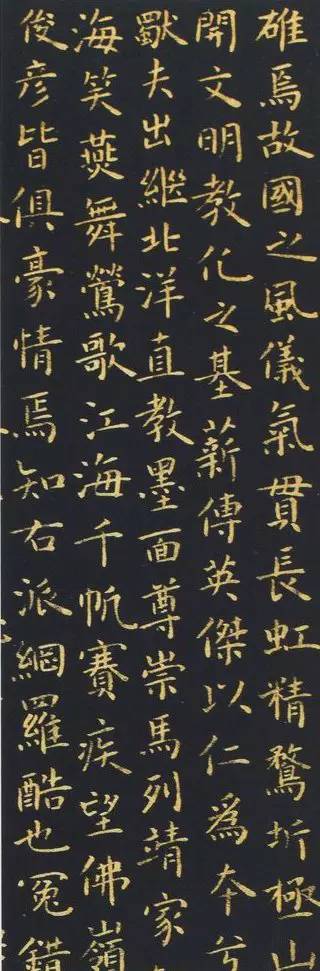 雄焉故國之風儀氣貫長虹精騖圻極山
開文明教化之基薪傳英傑以仁爲本兮
獸夫出繼北洋直教墨面尊崇馬列靖家
海笑燕舞鶯歌江海千帆賽疾望佛嶺
俊彥皆俱豪情焉知右派網羅酷也冤錯